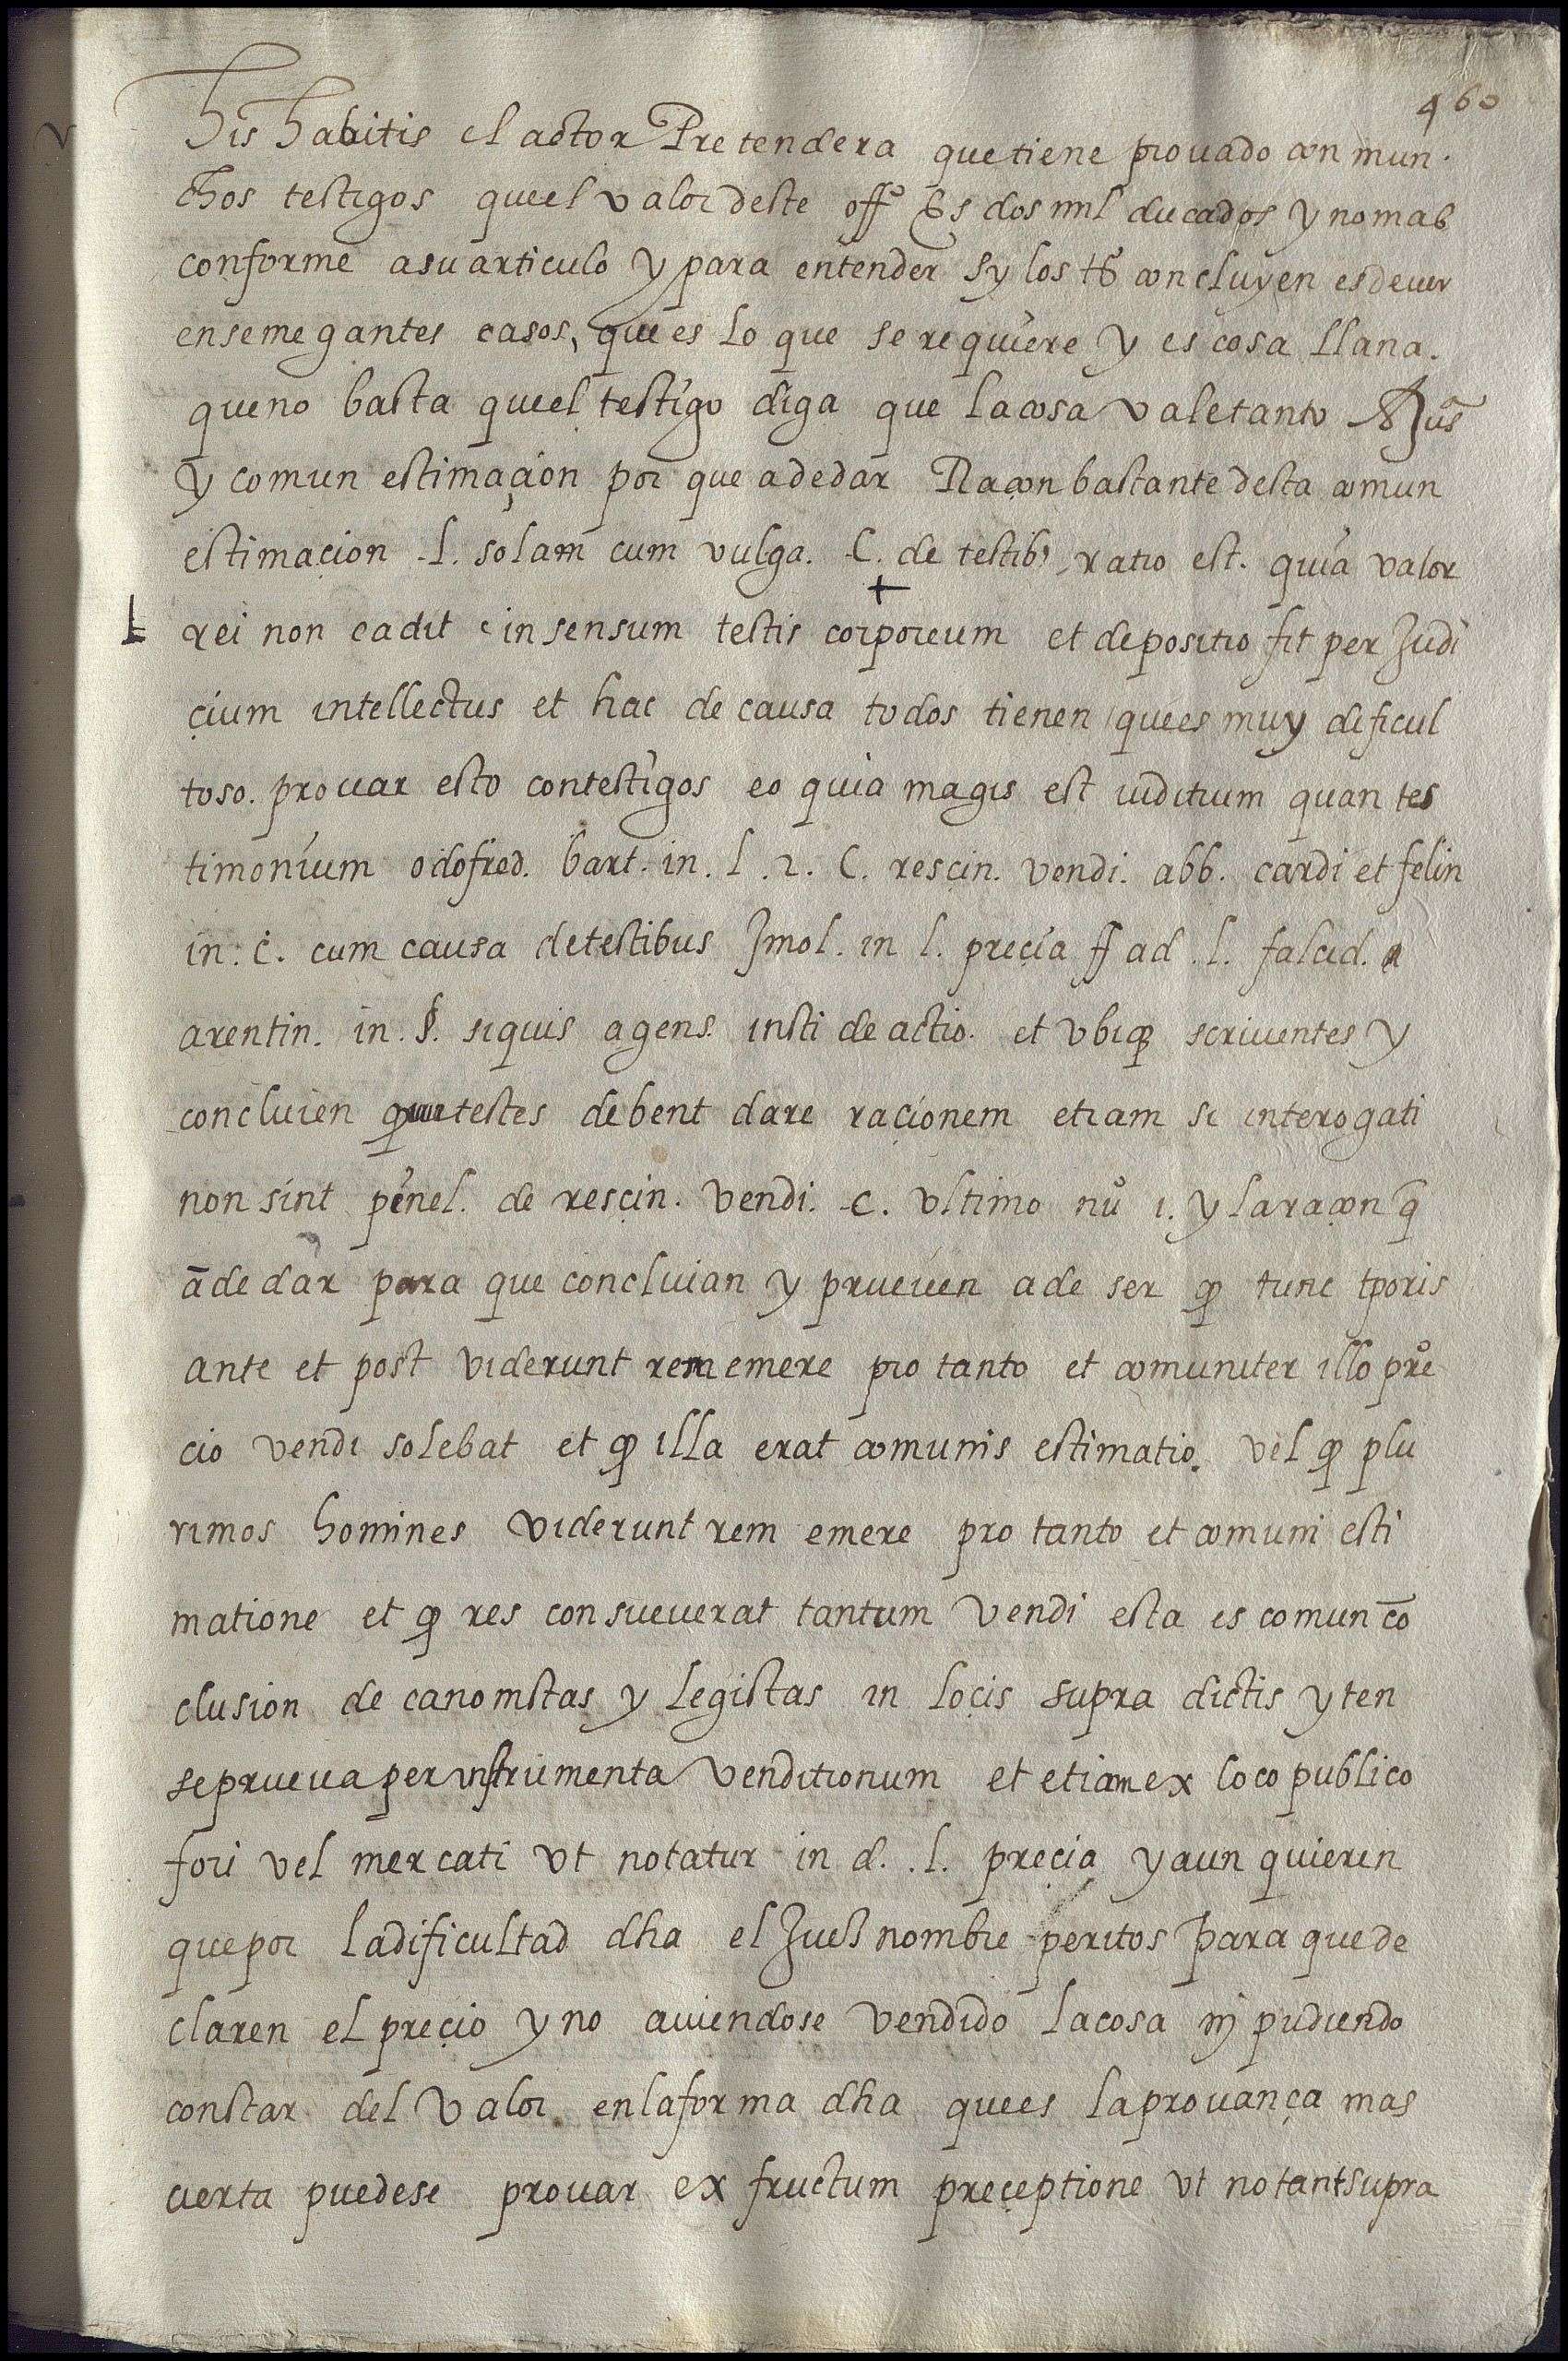 460
his habitis el actor Pretendera que tiene provado con mun
chos testigos queel valor deste offº Es dos mil ducados y no mas
conforme asu articulo y para entender sy los tsº concluyen es de ver
en semegantes casos, que es lo que se requiere y es cosa llana.
que no basta queel testigo diga que la cosa vale tanto
y comun estimaçion por que a de dar Raçon bastante desta comun
estimaçion l. solam cum vulga. C. de testib9 ratio est. quia valor
rei non cadit in sensum testis corporeum et depositio fit per Judi
çium intellectus et hac de causa todos tienen que es muy dificul
toso. provar esto con testigos eo quia magis est iuditium quan tes
timonium odofred. bart. in. l. 2. C. resçin. vendi. abb. cardi et felin
in. c. cum causa de testibus Jmol. in l. preçia ff ad. l. falcid.
arentin. in. §. siquis agens. insti de actio. et ubiq scriventes y
concluien que testes debent dare raçionem etiam si interogati
non sint pinel. de resçin. vendi. c. ultimo nu 1. y la raçon q̃
ā de dar para que concluian y prueven a de ser q tunc tporis
ante et post viderunt rem emere pro tanto et comuniter illo pre
cio vendi solebat et q illa erat comunis estimatio. vel q plu
rimos homines viderunt rem emere pro tanto et comuni esti
matione et q res consueverat tantum vendi esta es comun cō
clusion de canonistas y legistas in loçis supra dictis y ten
se prueva per instrumenta venditionum et etiam ex loco publico
fori vel mercati ut notatur in d. l. preçia y aun quieren
que por la dificultad dha el Juez nombre peritos para que de
claren el preçio y no aviendose vendido la cosa nj pudiendo
constar del valor. en la forma dha que es la provança mas
cierta puedese provar ex fructum preçeptione ut notant supra